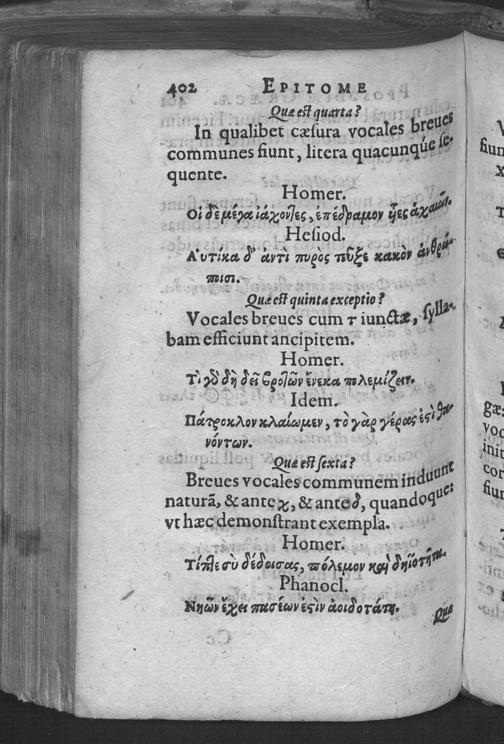 402 EPITOME
Quæ est quarta?
In qualibet cæsura vocales breues
communes fiunt, litera quacunqúe se-
quente.
Homer.
Οἱ δὲ μέγα ἰάχοντες, ἐπέδραμον υἷες ἀχαιῶν.
Hesiod.
Αὐτίκα δ' ἀντὶ πυρὸς τεῦξε κακὸν ἀνθρώ-
ποισι.
Quæ est quinta exceptio?
Vocales breues cum τ iunctæ, sylla-
bam efficiunt ancipitem.
Homer.
Τί γὰρ δὴ δεῖ βροτῶν ἕνεκα πολεμίζειν.
Idem.
Πάτροκλον κλαίωμεν, τὸ γὰρ γέρας ἐστὶ θα-
νόντων.
Quæ est sexta?
Breues vocales communem induunt
naturã, & ante χ, & ante δ, quandoque:
vt hæc demonstrant exempla.
Homer.
Τίπτε σὺ δέδοισας, πόλεμον καὶ δηϊοτῆτα.
Phanocl.
Νηῶν ἔχει πασέων ἐστὶν ἀοιδοτάτη.
Quæ
Cc